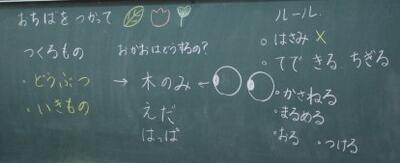 おちばを つかって
つくるもの
・どうぶつ
・いきもの
おかおはどうするの?
→ 木のみ ←
えだ
はっぱ
ルール
○ はさみ ×
○ てで きる、ちぎる
・かさねる
・まるめる
・おる ・つける